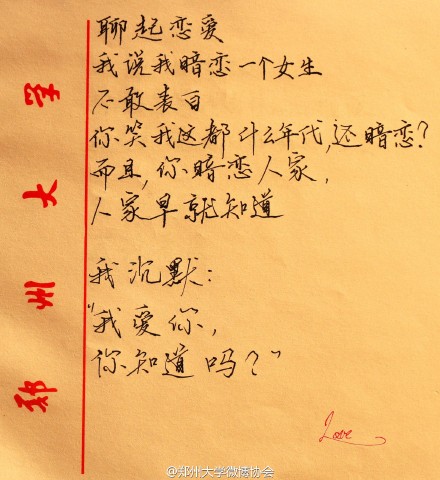 聊起恋爱
我说我暗恋一个女生
不敢表白
你笑我这都什么年代,还暗恋?
而且,你暗恋人家,
人家早就知道
我沉默:
"我爱你,
你知道吗?"
郑州大学
Love
@郑州大学微播协会